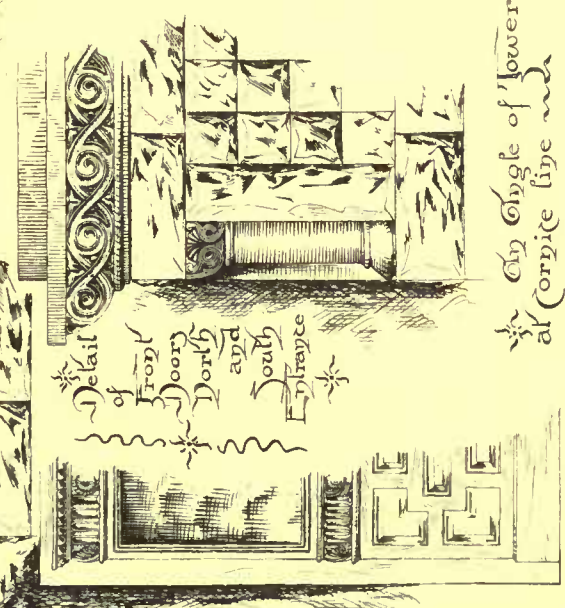 Detail
of
Front
Doors
North
and
South
Entrance
An Angle of Tower
at Cornice line